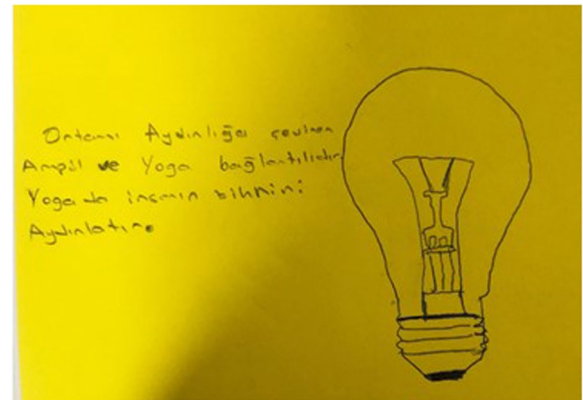 Ortamı Aydınlığa çeviren
Ampil ve Yoga bağlantılıdır
Yoga da insanın zihnini
Aydınlatır.